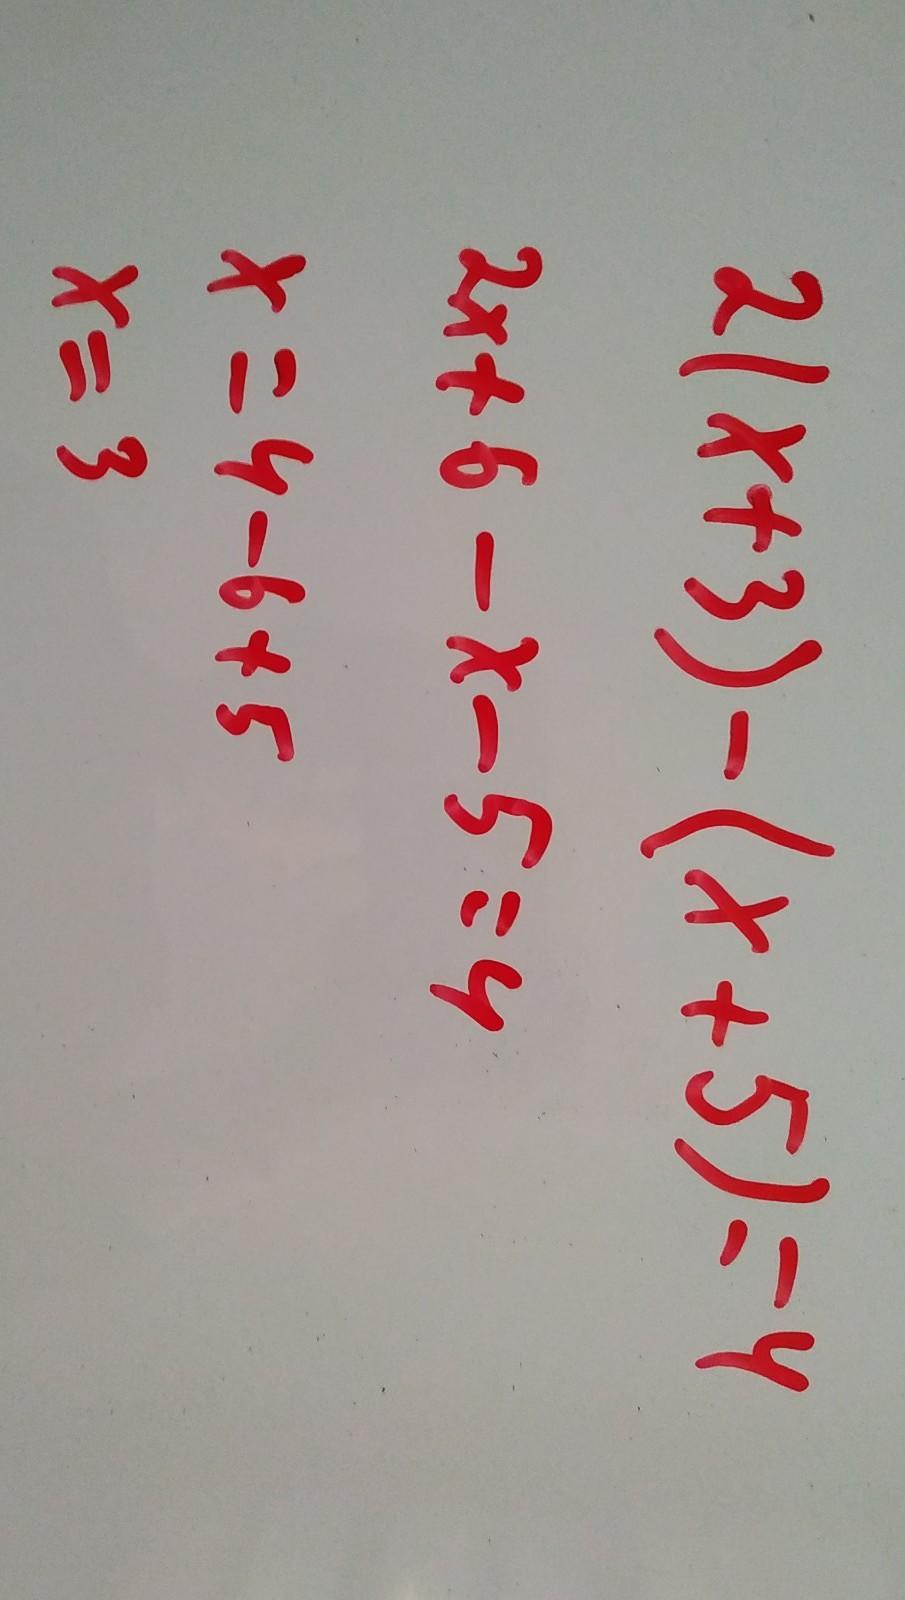 2(x+3)-(x+5)=4
2x+6-x-5=4
x=4-6+5
x=3